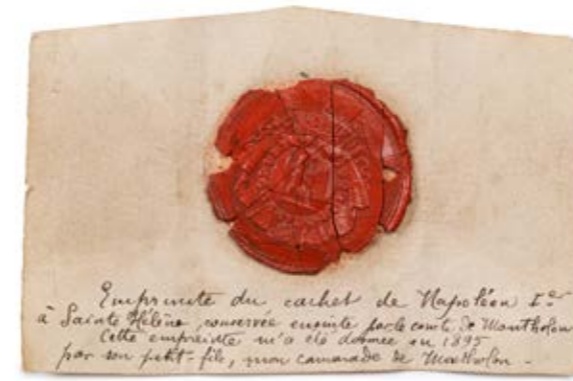 Empreinte du cachet de Napoléon Ier
à Sainte Hélène, conservée ensuite par le comte de Montholon
Cette empreinte m'a été donnée en 1895
par son petit-fils, mon camarade de Montholon.